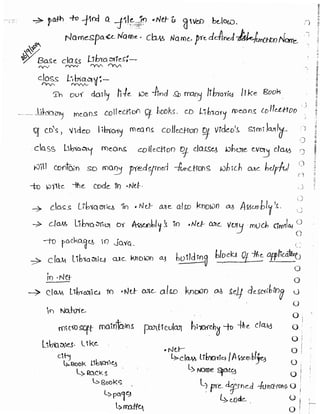 → path to find a file in .Net is given below.
Namespace Name. Class Name. pre defined function Name.
Base class Libraries:-
class Library:-
In our daily life we find so many libraries like Book
library means collection of books. CD Library means collection
of CD's, Video library means collection of Video's similarly.
class Library means collection of classes where every class
will contain so many predefined functions which are helpful
to write the code in .Net.
→ class Libraries in .Net are also known as Assembly's.
→ class Libraries or Assembly's in .Net are very much similar
to packages in Java.
→ class Libraries are known as building blocks of the application
in .Net
→ class Libraries in .Net are also known as self describing
in Nature.
microsoft maintains particular hierarchy to the class
Libraries. Like
city
↳ Book Libraries
↳ Racks
↳ Books
↳ pages
↳ matter
.Net
↳ class Libraries / Assemblies
↳ Name Spaces
↳ pre defined functions
↳ code.